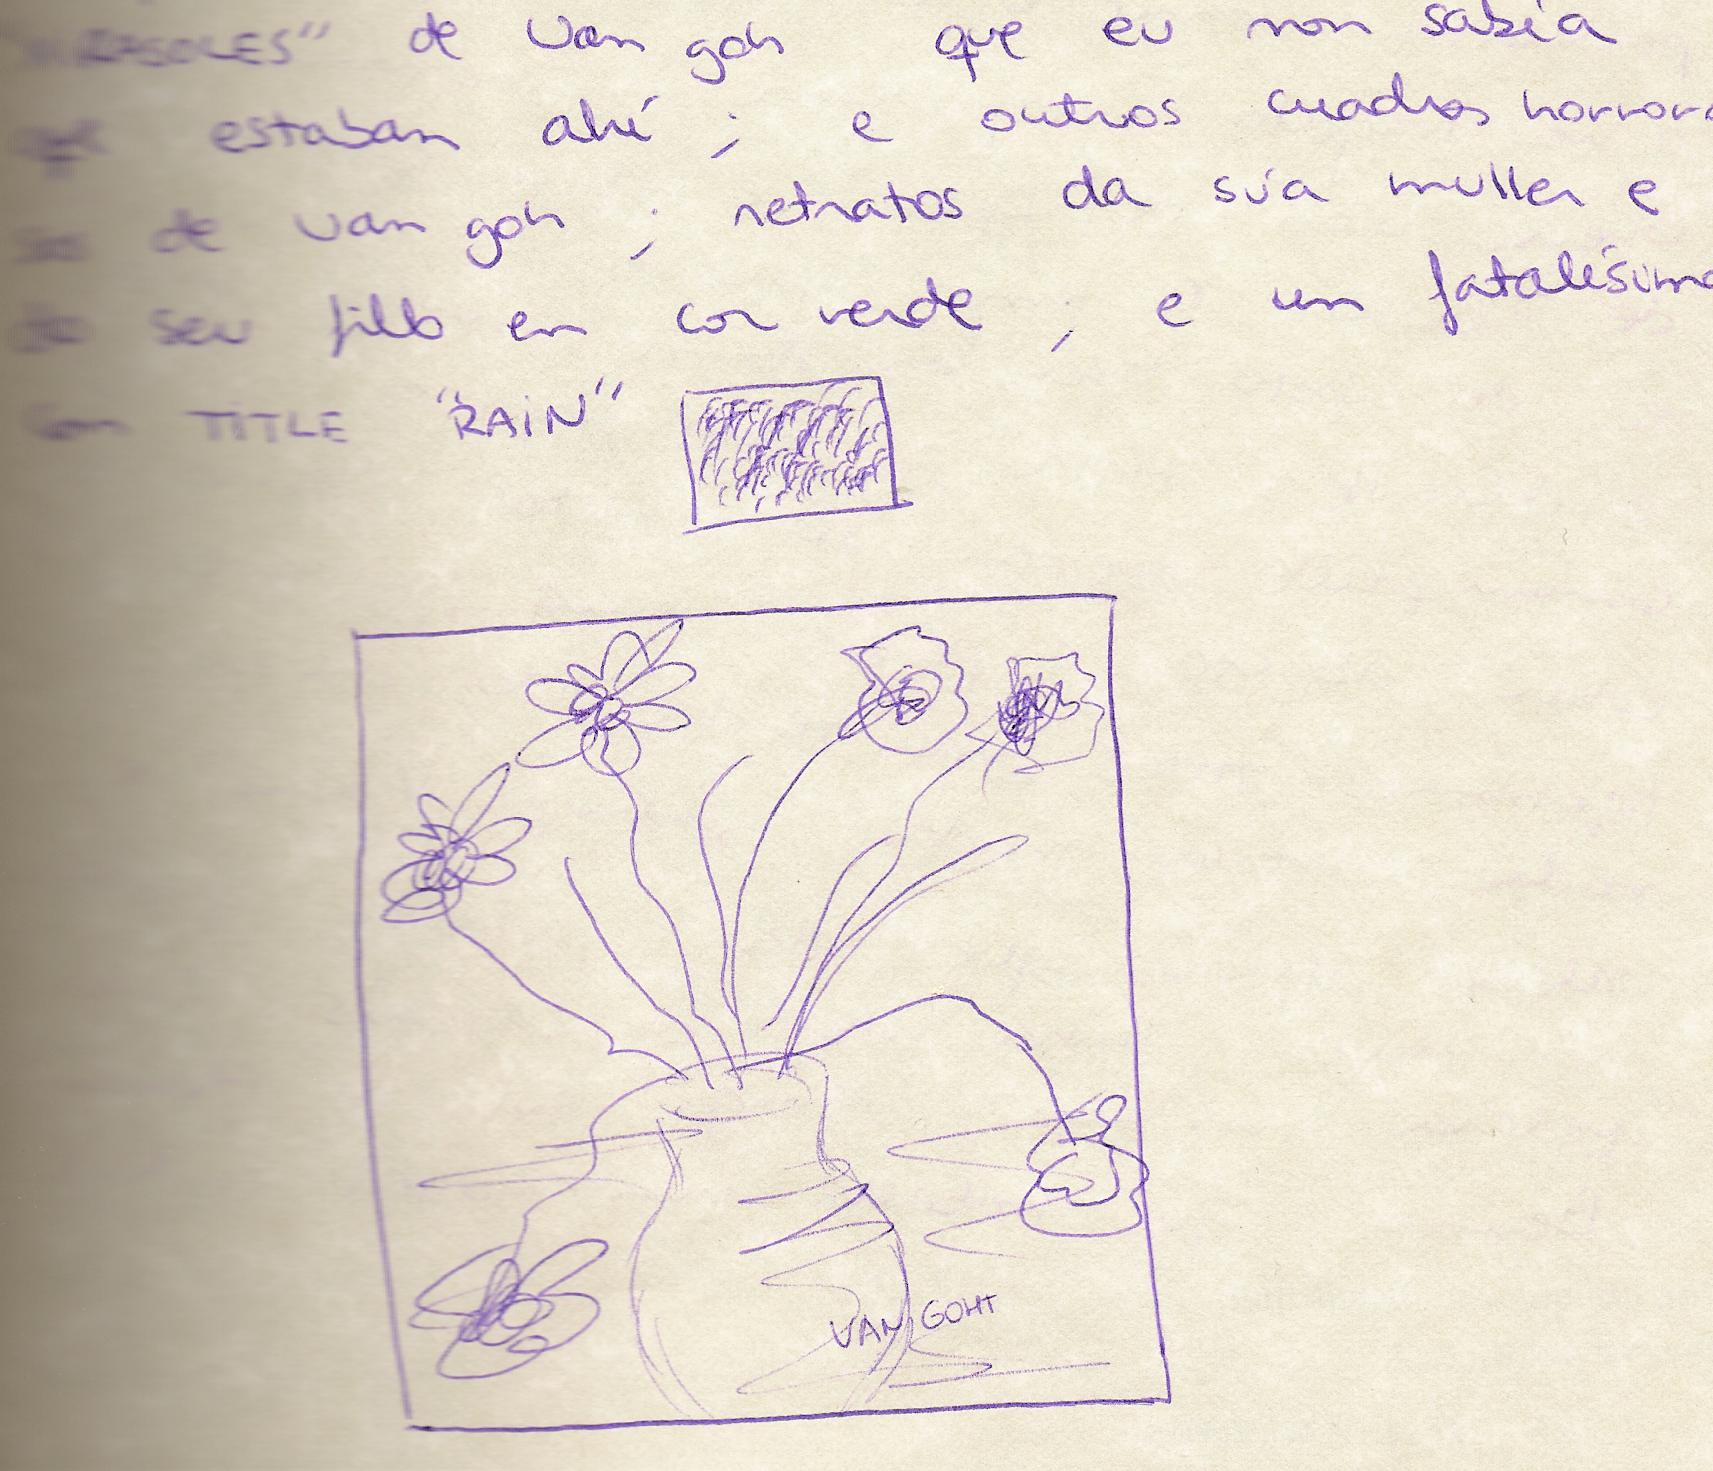 "XIRASOLES" de Van goh que eu non sabía
que estaban ahí ; e outros cuadros horroro
sos de van goh ; retratos da súa muller e
do seu fillo en cor verde ; e un fatalísimo
con TITLE "RAIN"
VAN GOHT